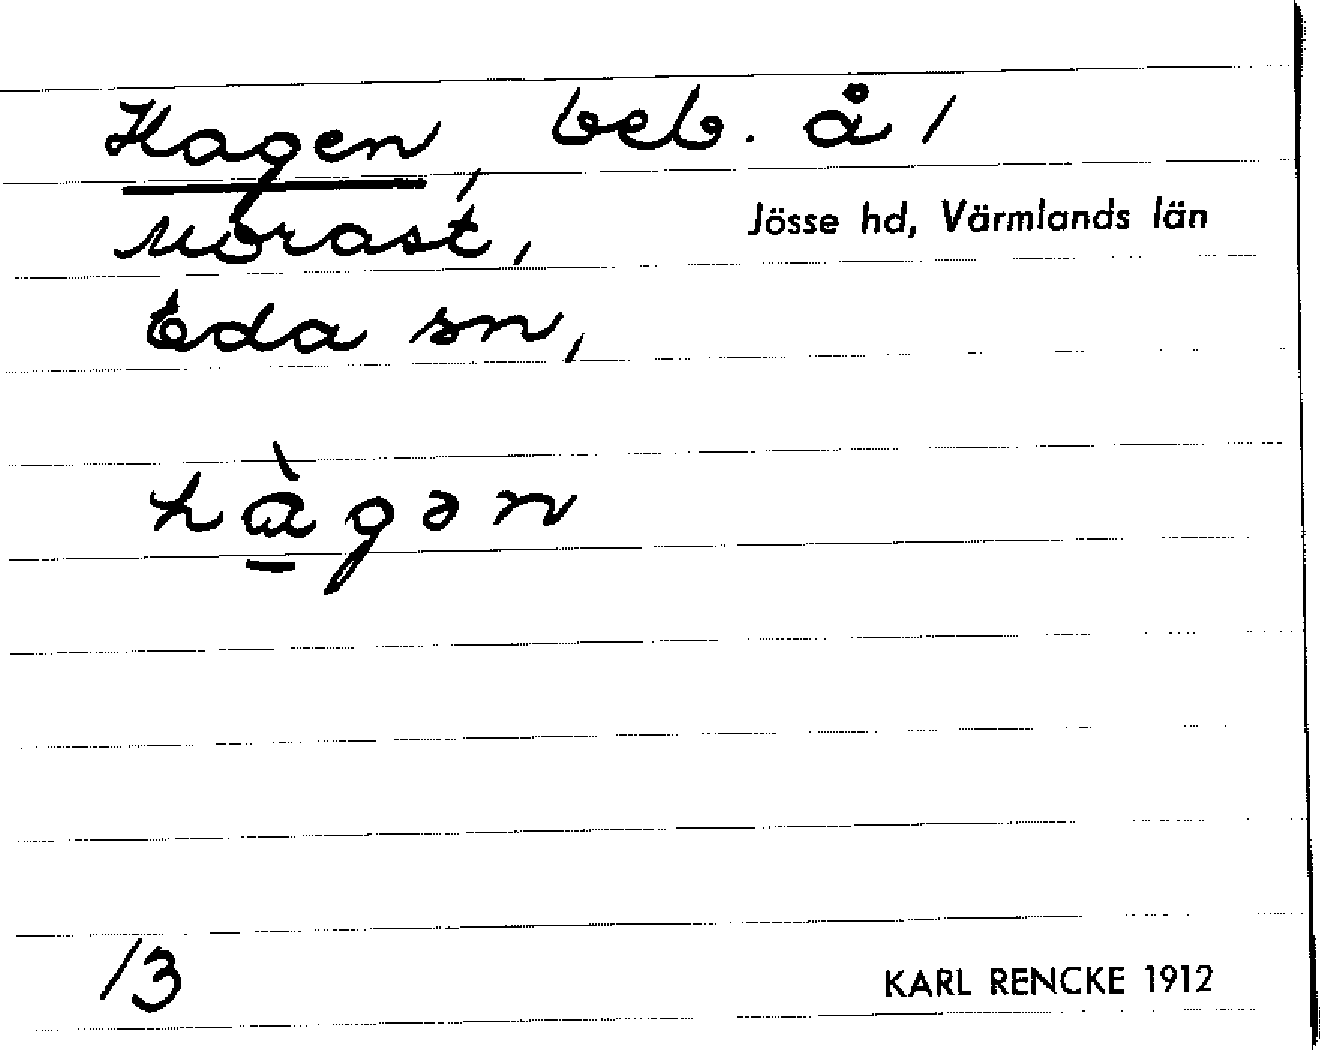 Hagen, beb. å /
Morast,
Jösse hd, Värmlands län
Eda sn,
hàgən
/3
KARL RENCKE 1912